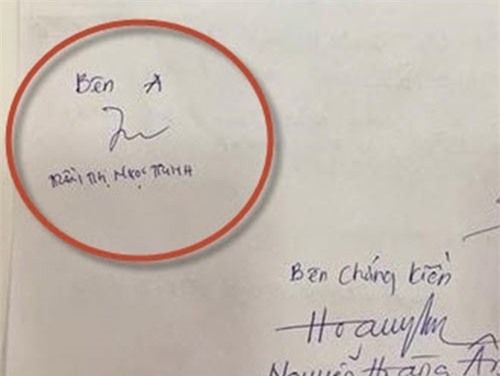 Bên A
Trần Thị Ngọc Trinh
Bên Chứng kiến
Nguyễn Hoàng Ân